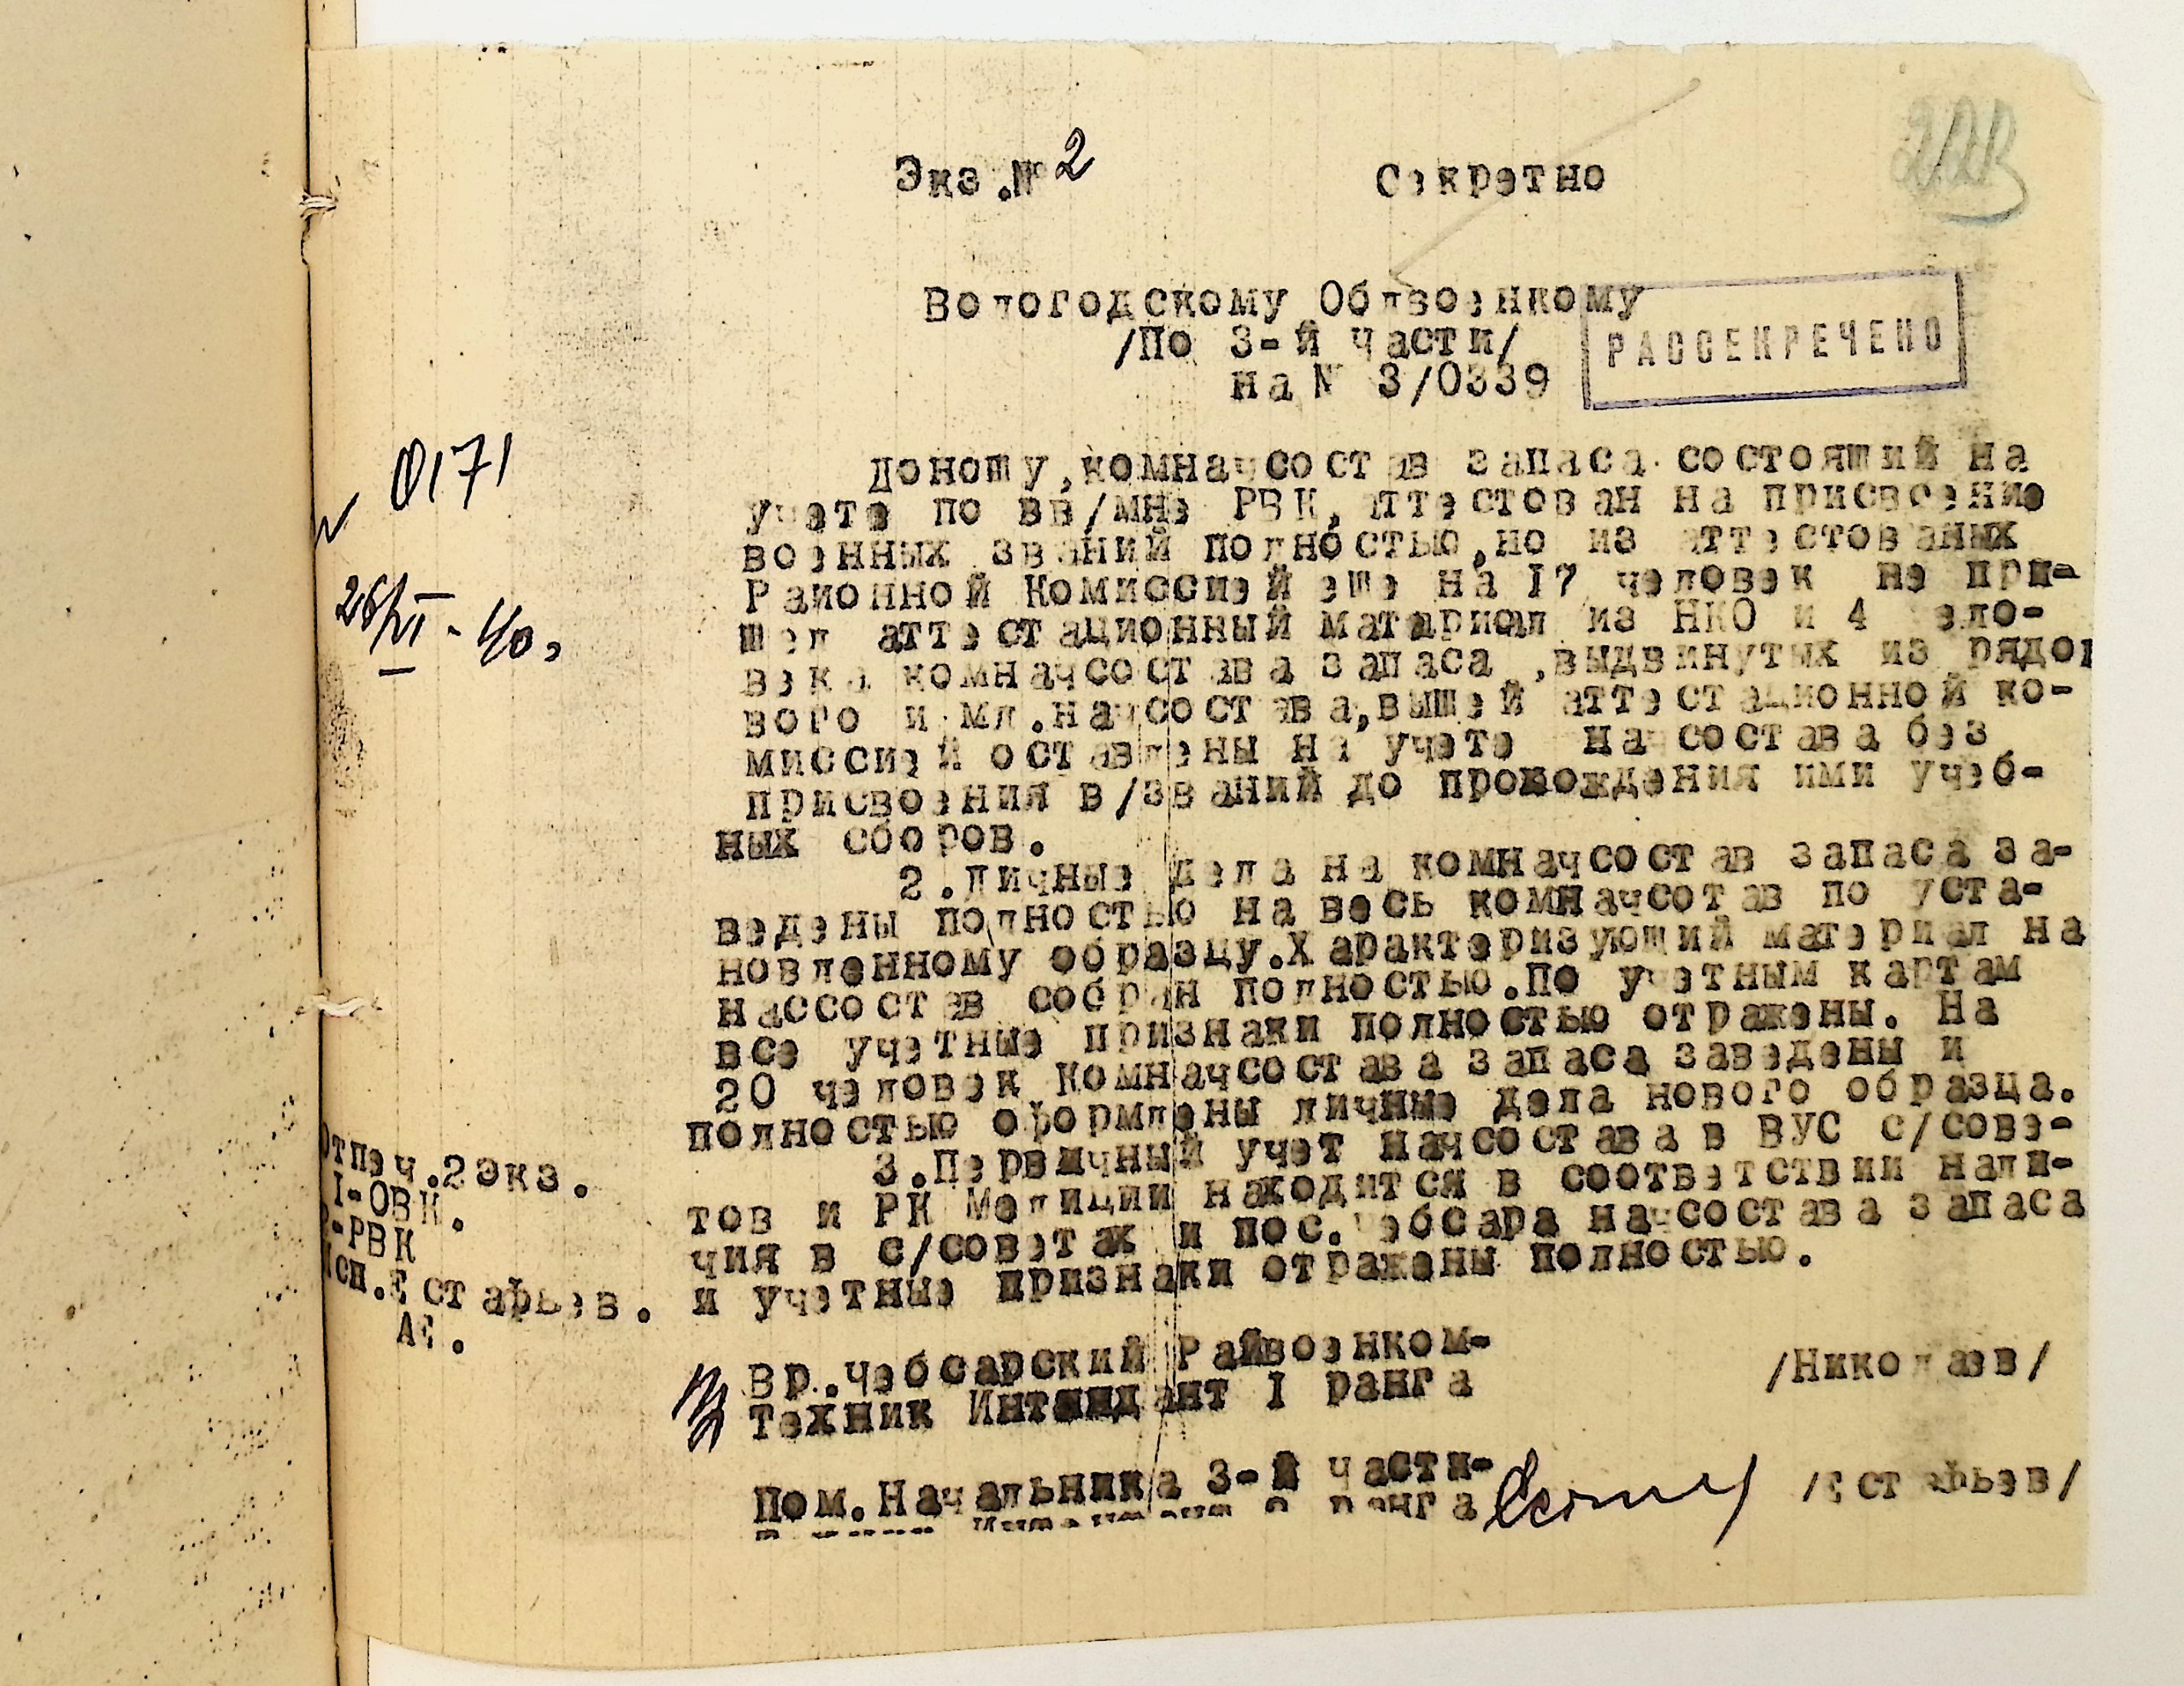 Экз.№ 2 Секретно
Вологодскому Облвоенкому
/По 3-й части/
на № 3/0339
РАССЕКРЕЧЕНО
№ 0171
26/VI-40,
Доношу,комначсостав запаса состоящий на
учете по вв/мне РВК, аттестован на присвоение
военных званий полностью,но из аттестованых
Раионной Комиссией еще на I7 человек не при-
шел аттестационный материал из НКО и 4 чело-
века комначсостава запаса ,выдвинутых из рядо
вого и мл.начсостава,вышей аттестационной ко-
миссией оставлены на учете начсостава без
присвоения в/званий до прохождения ими учеб-
ных сборов.
2.Личные дела на комначсостав запаса за-
ведены полностью на весь комначсотав по уста-
новленному образцу.Характеризующий материал на
нассостав собран полностью.По учетным картам
все учетные признаки полностью отражены. На
20 человек Комначсостава запаса заведены и
полностью оформлены личные дела нового образца.
3.Первичный учет начсостава в ВУС с/сове-
тов и РК Мелиции находится в соответствии нали-
чия в с/советах и пос.Чебсара начсостава запаса
и учетные признаки отражены полностью.
Отпеч.2 экз.
I-ОВК.
2-РВК
Исп.Естафьев.
АЕ.
Вр.Чебсарский Райвоенком-
Техник Интендант I ранга /Николаев/
Пом.Начальника 3-й части-
Техник Интендант 2 ранга /Естафьев/